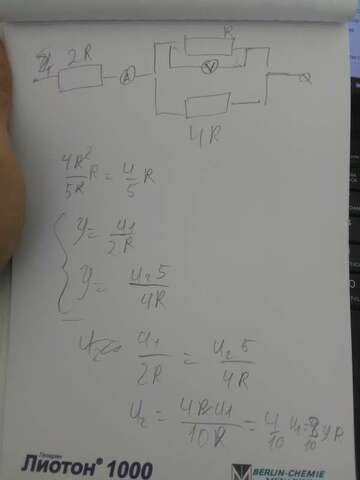 2R
A
R
V
4R
4R²/5R R = 4/5 R
y = u₁/2R
y = u₂5/4R
u₁/2R = u₂5/4R
u₂ = 4R u₁/10R = 4/10 u₁ =
Лиотон® 1000
BERLIN-CHEMIE